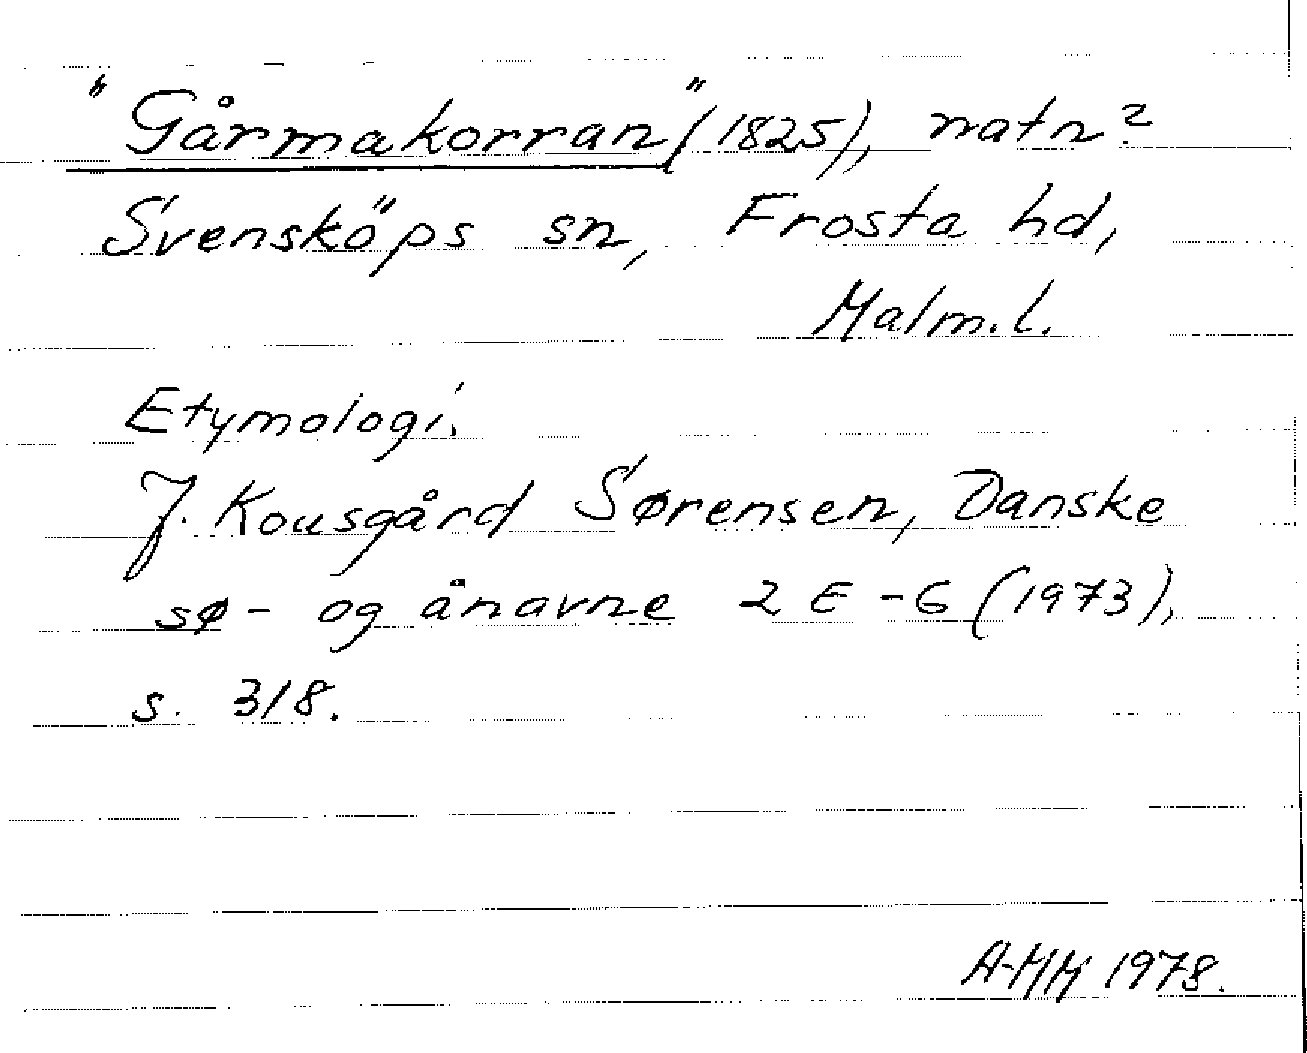 "Gårmakorran" (1825), natn?
Svensköps sn, Frosta hd,
Malm. l.
Etymologi.
J. Kousgård Sørensen, Danske
sø- og ånavne 2 E-G (1973),
s. 318.
A-MM 1978.